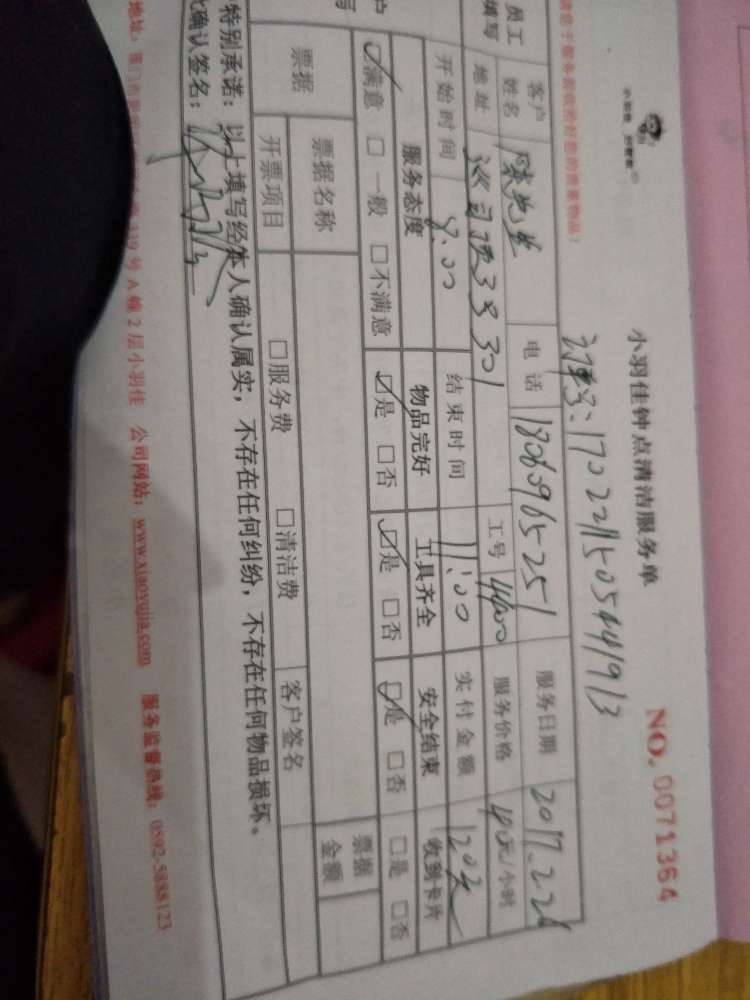 小羽佳 好管家
小羽佳钟点清洁服务单
NO. 0071364
订单号:1702211505441913
员工
填写
客户
姓名
陈先生
电话
18065965251
服务日期
2017.2.26
地址
3 8 301
工号
服务价格
40元/小时
开始时间
9:00
结束时间
11:00
实付金额
120元
户
写
服务态度
物品完好
工具齐全
安全结束
收到卡片
☑满意 □一般 □不满意
☑是 □否
☑是 □否
☑是 □否
□是 □否
票据
票据名称
票据
金额
开票项目
□服务费 □清洁费
客户签名
特别承诺:以上填写经本人确认属实,不存在任何纠纷,不存在任何物品损坏。
确认签名:
地址:厦门市
319号A幢2层小羽佳 公司网站:www.xiaoyujia.com 服务监督热线:0592-5888123